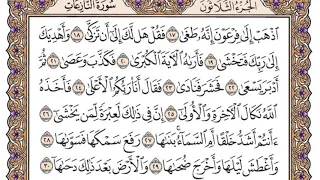 الجزء الثلاثون
سورة النازعات
ٱذۡهَبۡ إِلَىٰ فِرۡعَوۡنَ إِنَّهُۥ طَغَىٰ ١٧ فَقُلۡ هَل لَّكَ إِلَىٰٓ أَن تَزَكَّىٰ ١٨ وَأَهۡدِيَكَ
إِلَىٰ رَبِّكَ فَتَخۡشَىٰ ١٩ فَأَرَىٰهُ ٱلۡأٓيَةَ ٱلۡكُبۡرَىٰ ٢٠ فَكَذَّبَ وَعَصَىٰ ٢١ ثُمَّ
أَدۡبَرَ يَسۡعَىٰ ٢٢ فَحَشَرَ فَنَادَىٰ ٢٣ فَقَالَ أَنَا۠ رَبُّكُمُ ٱلۡأَعۡلَىٰ ٢٤ فَأَخَذَهُ
ٱللَّهُ نَكَالَ ٱلۡأٓخِرَةِ وَٱلۡأُولَىٰٓ ٢٥ إِنَّ فِي ذَٰلِكَ لَعِبۡرَةٗ لِّمَن يَخۡشَىٰٓ ٢٦
ءَأَنتُمۡ أَشَدُّ خَلۡقًا أَمِ ٱلسَّمَآءُۚ بَنَىٰهَا ٢٧ رَفَعَ سَمۡكَهَا فَسَوَّىٰهَا ٢٨
وَأَغۡطَشَ لَيۡلَهَا وَأَخۡرَجَ ضُحَىٰهَا ٢٩ وَٱلۡأَرۡضَ بَعۡدَ ذَٰلِكَ دَحَىٰهَآ ٣٠